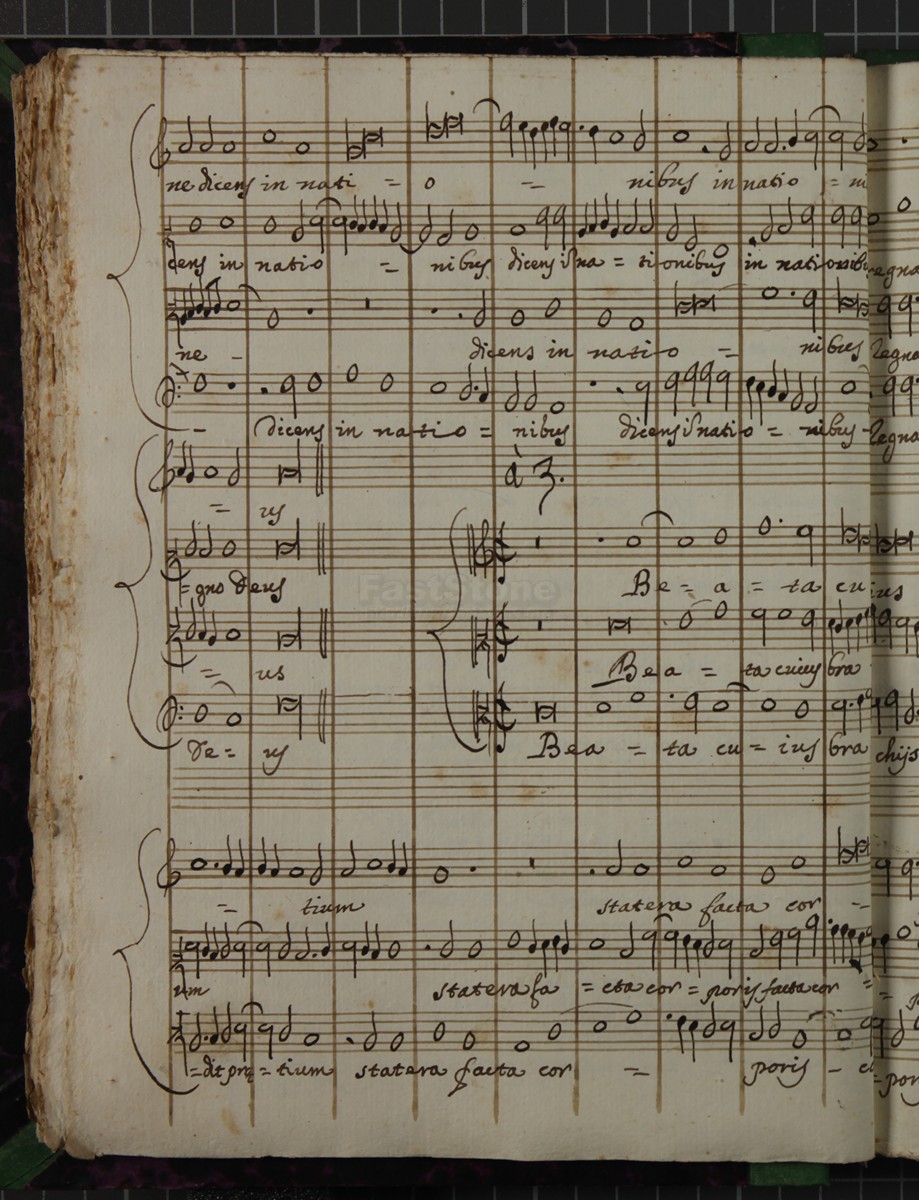 ne dicens in nati = o = nibus in natio =
cens in natio = nibus dicens in na = tionibus in nationibus
ne - dicens in natio = nibus Regna
- dicens in natio = nibus dicens in natio = nibus - Regna
à 3.
= us
Be = a = ta cu ius
= gno Deus
Bea = ta cuius bra
= us
Bea = ta cu = ius bra chijs
De = us
= tium statera facta cor =
um statera fa = cta cor = poris facta cor =
= dit prę = tium statera facta cor = poris -
FastStone